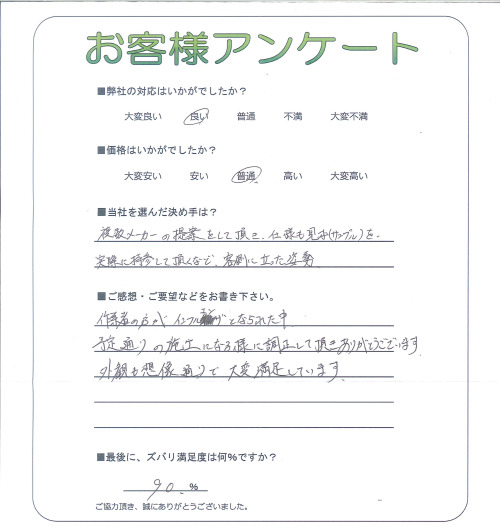 お客様アンケート
■弊社の対応はいかがでしたか？
大変良い 良い 普通 不満 大変不満
■価格はいかがでしたか？
大変安い 安い 普通 高い 大変高い
■当社を選んだ決め手は？
複数メーカーの提案をして頂き、仕様も見本(サンプル)を、
実際に持参して頂くなど、客側に立った姿勢
■ご感想・ご要望などをお書き下さい。
作業者の方が インフル となられた中
予定通りの施工になる様に調正して頂きありがとうございます
外観も想像通りで大変満足しています。
■最後に、ズバリ満足度は何%ですか？
90. %
ご協力頂き、誠にありがとうございました。